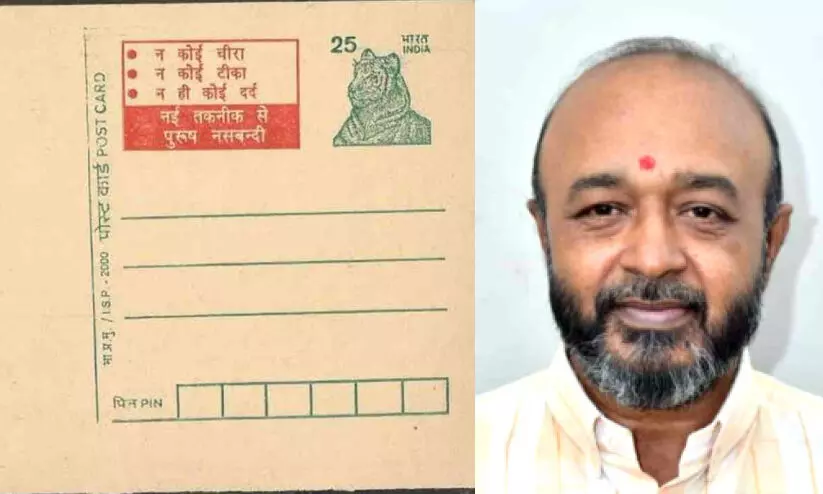 न कोई चीरा
न कोई टीका
न ही कोई दर्द
नई तकनीक से
पुरूष नसबन्दी
25 भारत
INDIA
भा.प्र.मु. / I.S.P. - 2000 पोस्ट कार्ड POST CARD
पिन PIN